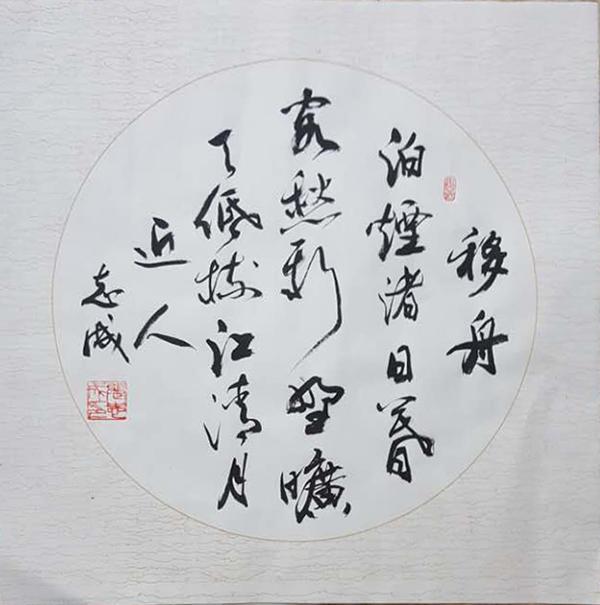 移舟
泊煙渚日暮
客愁新野曠
天低樹江清月
近人
志成